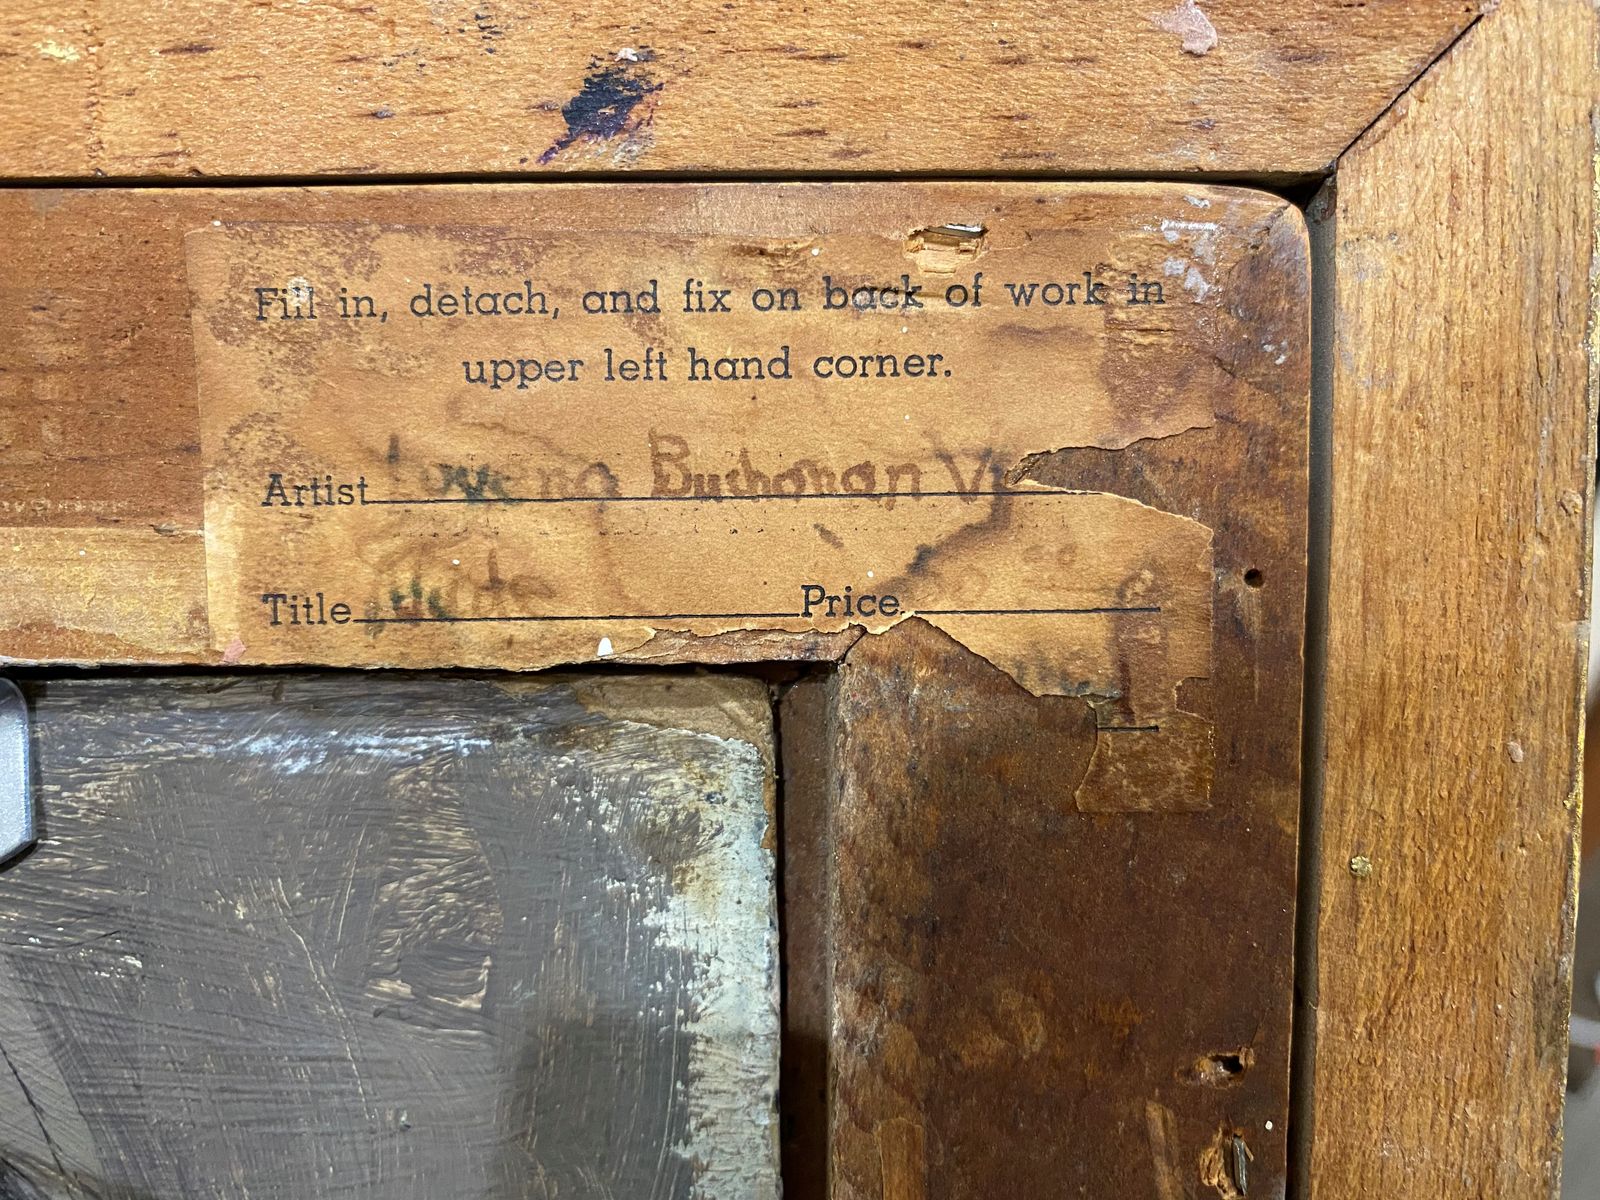 Fill in, detach, and fix on back of work in
upper left hand corner.
Artist Buchanan
Title Price